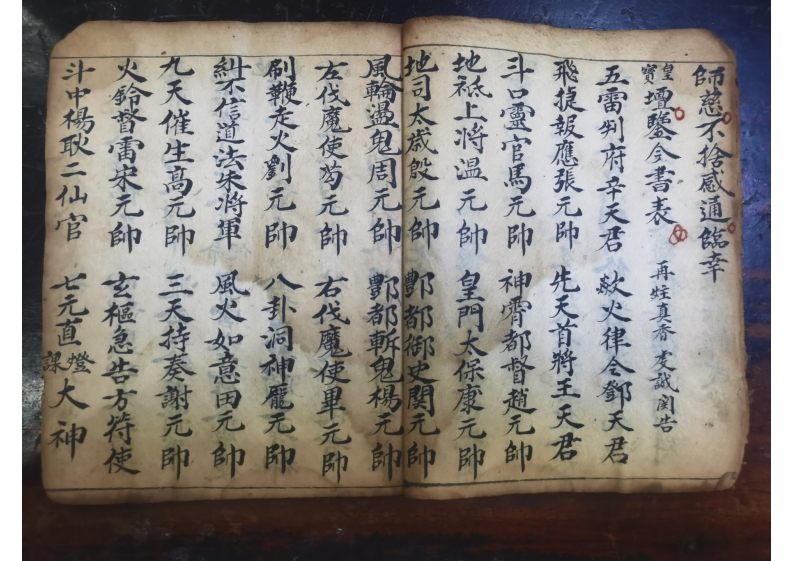 師慈不捨感通臨幸
皇寶壇鑒全書表 再炷真香虔誠関告
五雷判府辛天君 歘火律令鄧天君
飛捷報應張元帥 先天首將王天君
斗口靈官馬元帥 神霄都督趙元帥
地祇上將溫元帥 皇門太保康元帥
地司太歲殷元帥 酆都御史関元帥
風輪盪鬼周元帥 酆都斬鬼楊元帥
左伐魔使苟元帥 右伐魔使畢元帥
刷鞭走火劉元帥 八卦洞神龎元帥
糾不信道法朱將軍 風火如意田元帥
九天催生高元帥 三天持奏謝元帥
火鈴督雷宋元帥 玄樞急告方符使
斗中楊耿二仙官 七元直燈課大神